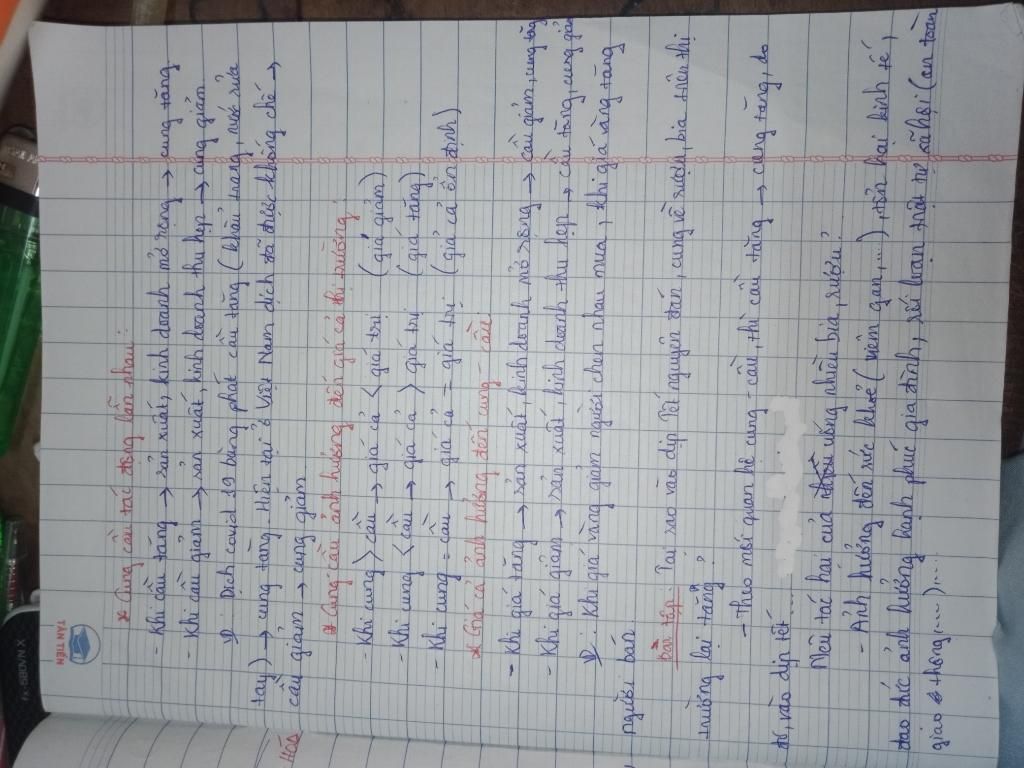 TÂN TIẾN
* Cung cầu tác động lẫn nhau:
- Khi cầu tăng → sản xuất, kinh doanh mở rộng → cung tăng
- Khi cầu giảm → sản xuất, kinh doanh thu hẹp → cung giảm.
VD: Dịch covid 19 bùng phát cầu tăng (khẩu trang, nước rửa
tay) → cung tăng. Hiện tại ở Việt Nam dịch đã được khống chế →
cầu giảm → cung giảm.
* Cung cầu ảnh hưởng đến giá cả thị trường:
- Khi cung > cầu → giá cả < giá trị (giá giảm)
- Khi cung < cầu → giá cả > giá trị (giá tăng)
- Khi cung = cầu → giá cả = giá trị (giá cả ổn định)
* Giá cả ảnh hưởng đến cung - cầu
- Khi giá tăng → sản xuất, kinh doanh mở rộng → cầu giảm, cung tăng
- Khi giá giảm → sản xuất, kinh doanh thu hẹp → cầu tăng, cung giảm
VD: Khi giá vàng giảm người chen nhau mua, khi giá vàng tăng
người bán.
Bài tập: Tại sao vào dịp Tết nguyên đán, cung về rượu, bia trên thị
trường lại tăng?
→ Theo mối quan hệ cung - cầu, thì cầu tăng → cung tăng, do
đó, vào dịp tết ....
Nêu tác hại của uống nhiều bia, rượu?
- Ảnh hưởng đến sức khoẻ (viêm gan,...), tổn hại kinh tế,
đạo đức ảnh hưởng hạnh phúc gia đình, rối loạn trật tự xã hội (an toàn
giao thông,...),...